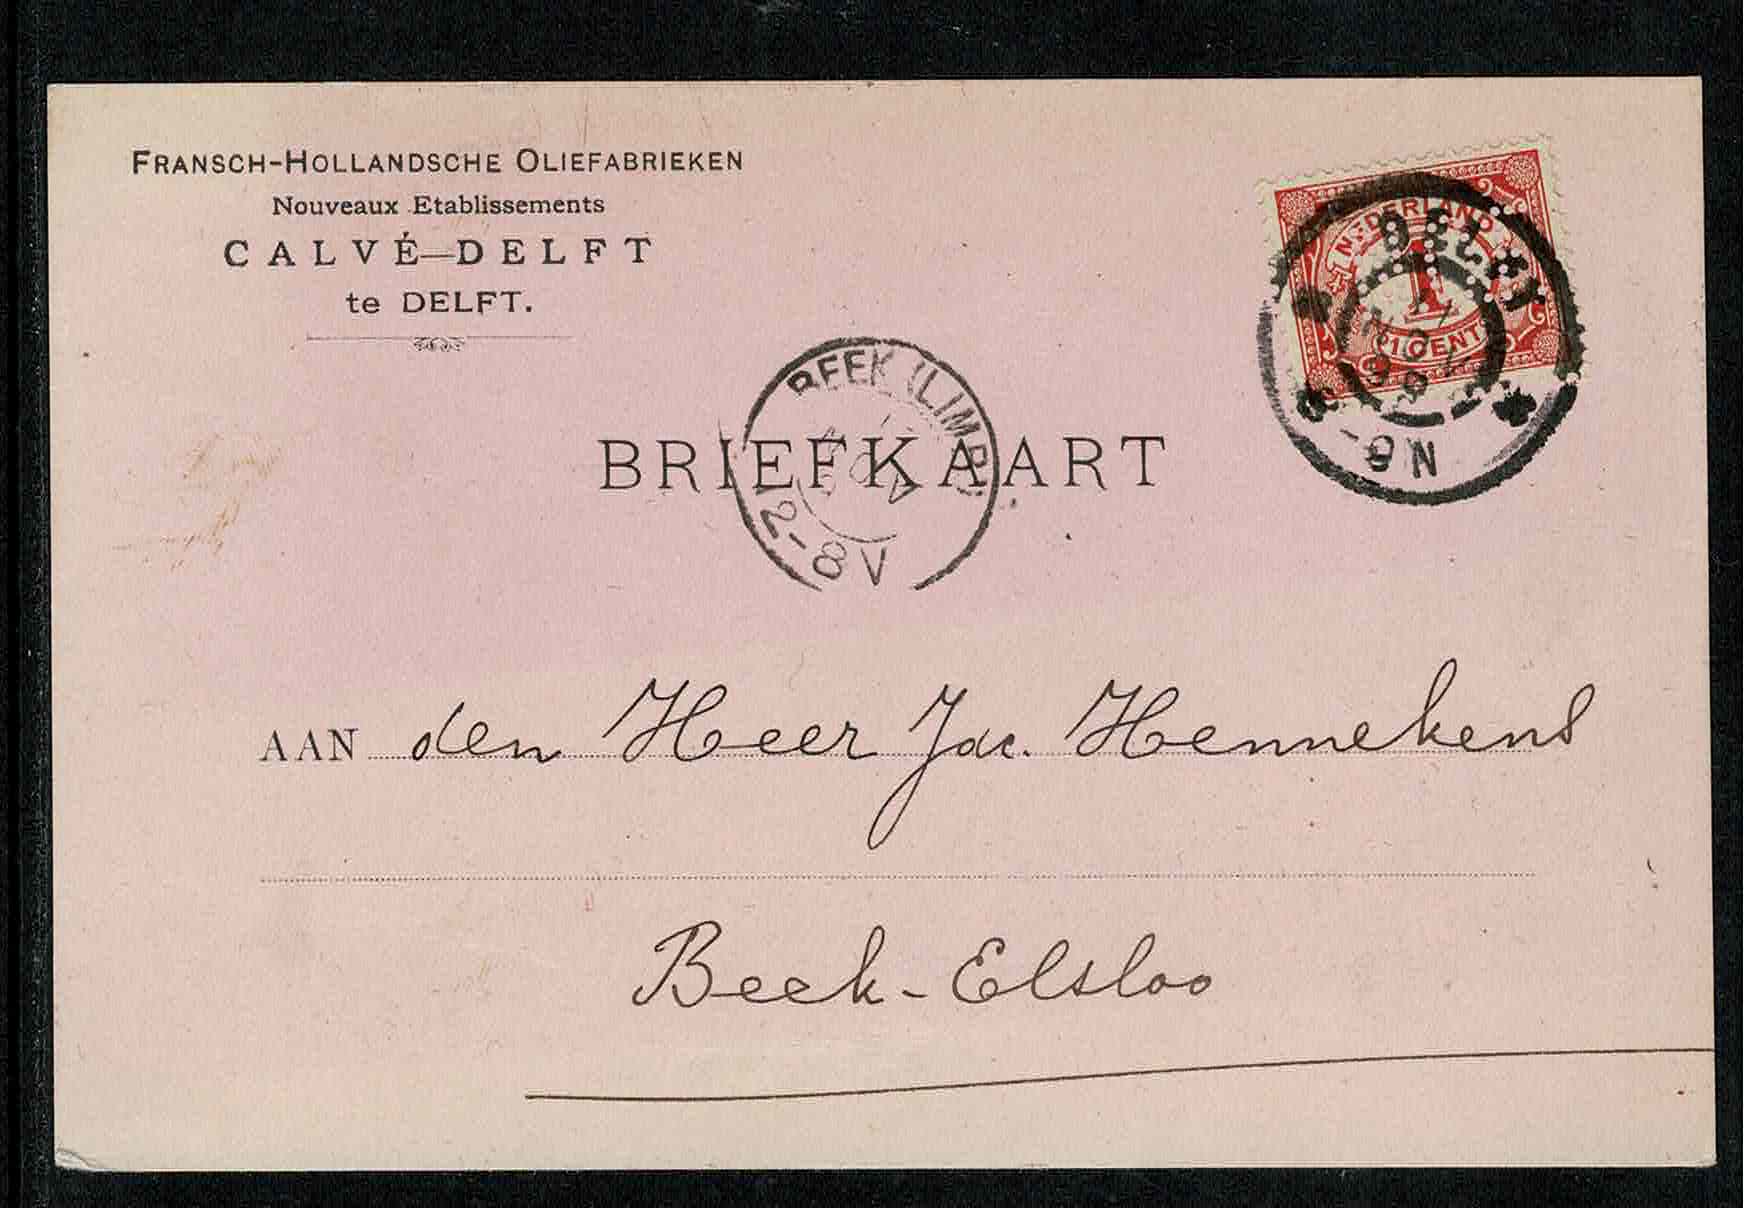 FRANSCH-HOLLANDSCHE OLIEFABRIEKEN
Nouveaux Etablissements
CALVÉ—DELFT
te DELFT.
NEDERLAND
1
1 CENT
DELFT
8-N
BEEK (LIMB)
12-8V
BRIEFKAART
AAN den Heer Jac. Hennekens
Beek-Elsloo